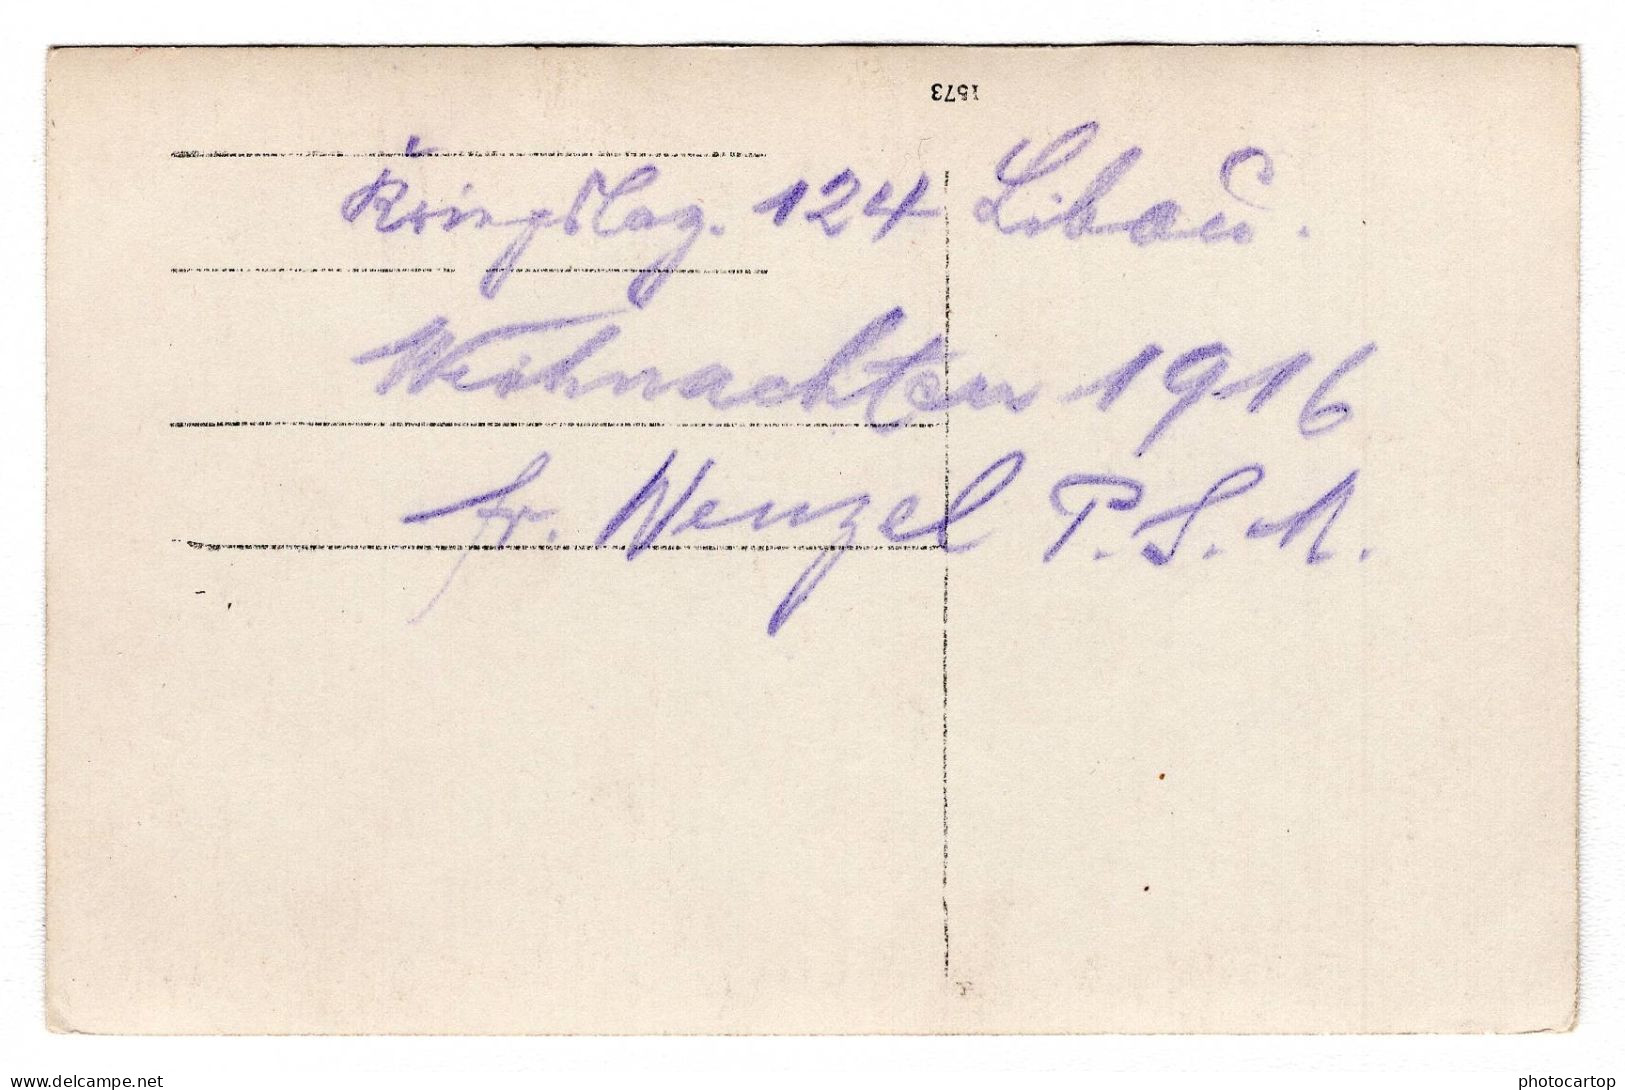 1573
Kriegslaz. 124 Libau.
Weihnachten 1916
fr. Wenzel P.S.A.
delcampe.net
photocartop